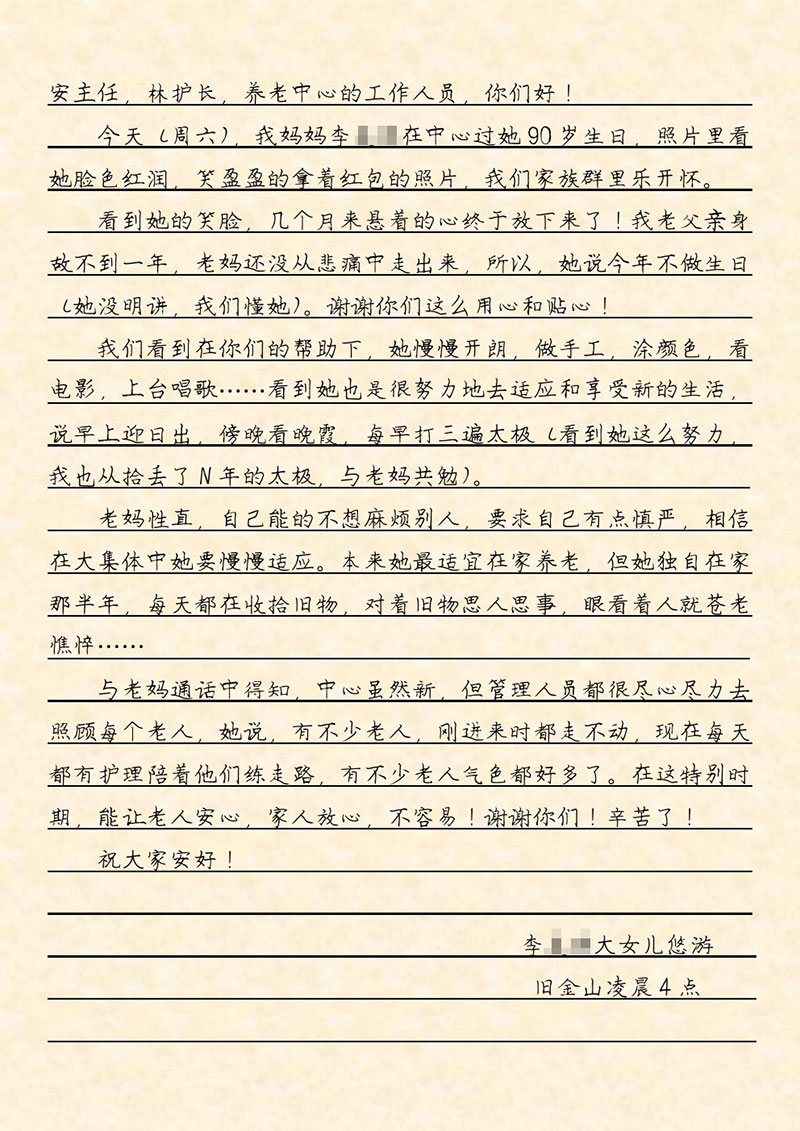 安主任，林护长，养老中心的工作人员，你们好！
今天（周六），我妈妈李在中心过她90岁生日，照片里看
她脸色红润，笑盈盈的拿着红包的照片，我们家族群里乐开怀。
看到她的笑脸，几个月来悬着的心终于放下来了！我老父亲身
故不到一年，老妈还没从悲痛中走出来，所以，她说今年不做生日
（她没明讲，我们懂她）。谢谢你们这么用心和贴心！
我们看到在你们的帮助下，她慢慢开朗，做手工，涂颜色，看
电影，上台唱歌……看到她也是很努力地去适应和享受新的生活，
说早上迎日出，傍晚看晚霞，每早打三遍太极（看到她这么努力，
我也从拾丢了N年的太极，与老妈共勉）。
老妈性直，自己能的不想麻烦别人，要求自己有点慎严，相信
在大集体中她要慢慢适应。本来她最适宜在家养老，但她独自在家
那半年，每天都在收拾旧物，对着旧物思人思事，眼看着人就苍老
憔悴……
与老妈通话中得知，中心虽然新，但管理人员都很尽心尽力去
照顾每个老人，她说，有不少老人，刚进来时都走不动，现在每天
都有护理陪着他们练走路，有不少老人气色都好多了。在这特别时
期，能让老人安心，家人放心，不容易！谢谢你们！辛苦了！
祝大家安好！
李大女儿悠游
旧金山凌晨4点